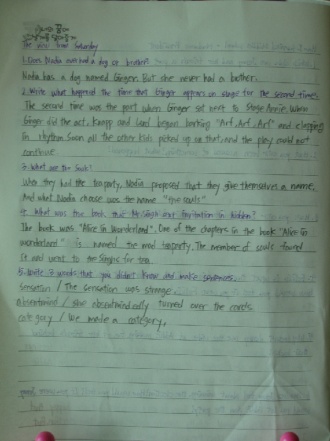 The View from Saturday
1. Does Nadia ever had a dog or brother?
Nadia has a dog named Ginger. But she never had a bother.
2. Write what happened the time that Ginger appears on stage for the second times.
The second time was the part when Ginger sat next to Annie. When
Ginger did the act, and began barking "Arf. Arf. Arf" and clapping
in rhythm. Soon all the other kids picked up that and the play could not
continue.
3. What are the Souls?
When they had the teaparty, Nadia proposed that they give themselves a name.
And what Nadia choose was the name "the souls"
4. What was the book that Mr. Singh was invitation in hidden?
The book was "Alice In Wonderland". One of the chapters in the book "Alice In
wonderland" is named the mad teaparty. The member of souls found
it and went to the Singhs for tea.
5. Write 3 words that you didn't know and make sentences.
sensation / The sensation was strange.
absentmind / She absentmindedly turned over the cards.
category / We made a category.